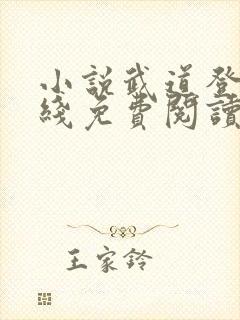 小說武道登
綫免費閱讀
王家鈴